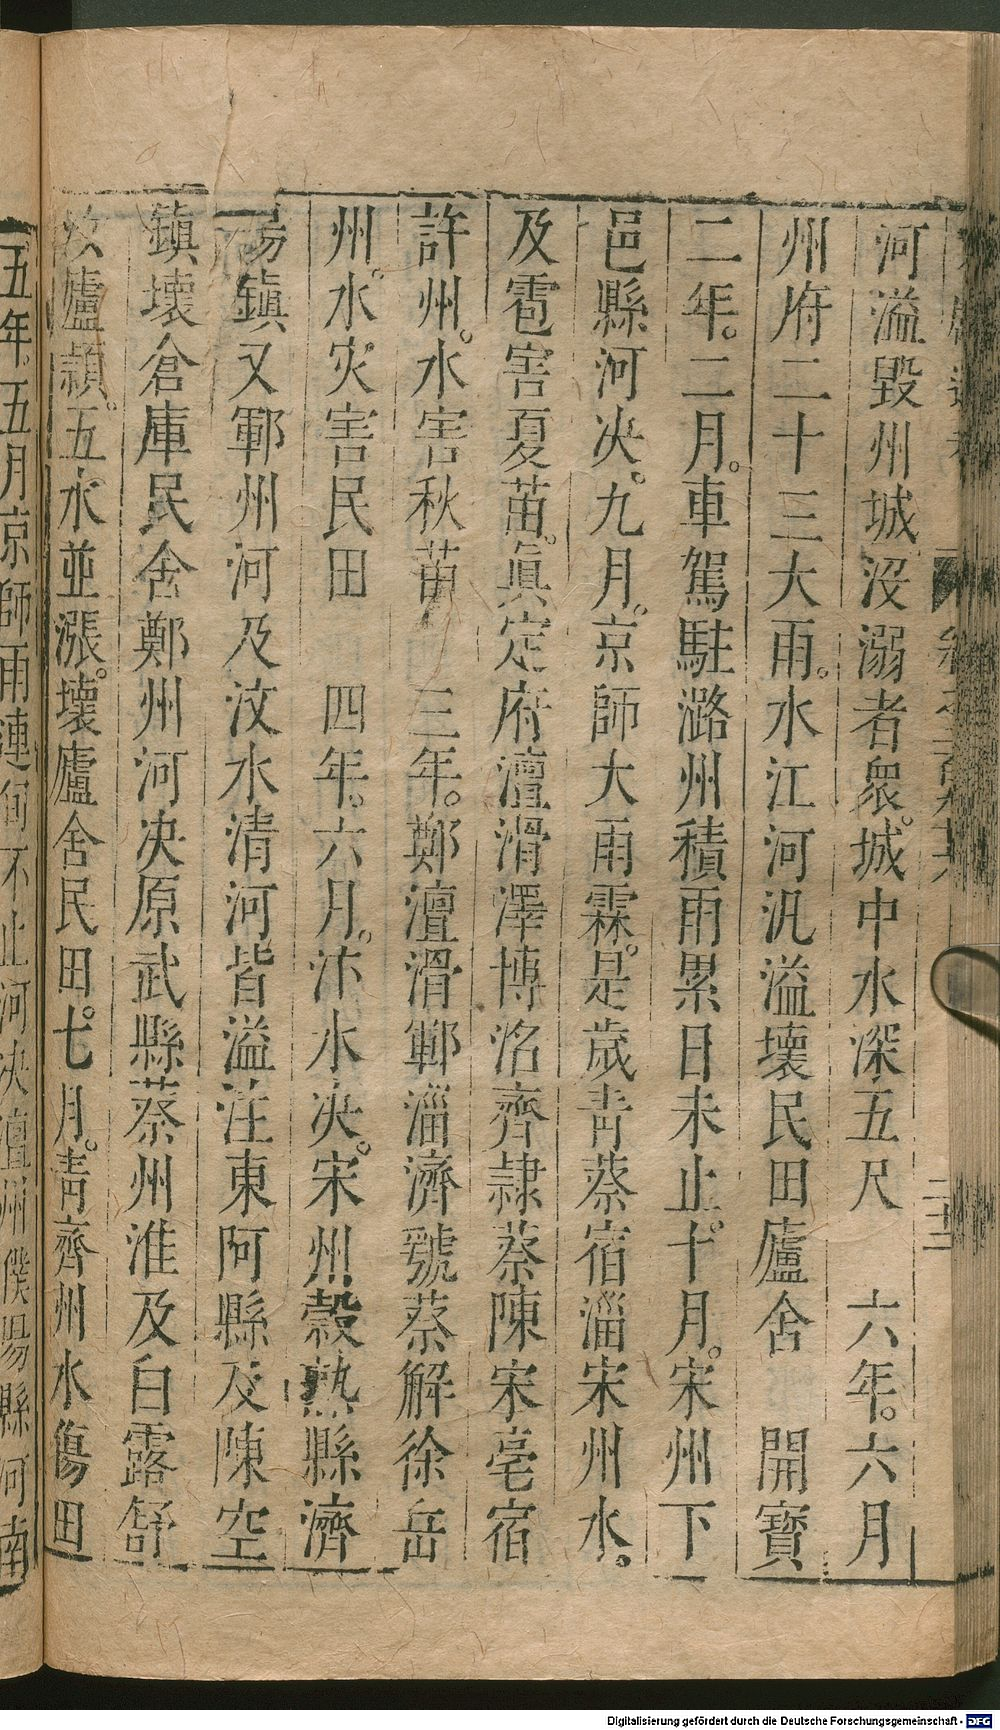 河溢毀州城沒溺者衆。城中水深五尺　六年。六月
州府二十三大雨。水江河汎溢壞民田廬舍　開寶
二年。二月。車駕駐潞州積雨累日未止。十月。宋州下
邑縣河決。九月。京師大雨霖。是歲靑蔡宿淄宋州水。
及雹害夏苗。眞定府澶滑澤博洺齊隷蔡陳宋亳宿
許州。水害秋苗　三年。鄭澶滑鄆淄濟虢蔡解徐岳
州。水灾害民田　四年。六月。汴水決。宋州穀熟縣濟
陽鎭又鄆州河及汶水清河皆溢注東阿縣及陳空
鎭壞倉庫民舍鄭州河决原武縣蔡州淮及白露舒
汝廬潁。五水並漲。壞廬舍民田。七月。靑齊州水傷田
五年。五月京師雨連旬不止河决澶州濮陽縣河南
Digitalisierung gefördert durch die Deutsche Forschungsgemeinschaft - DFG